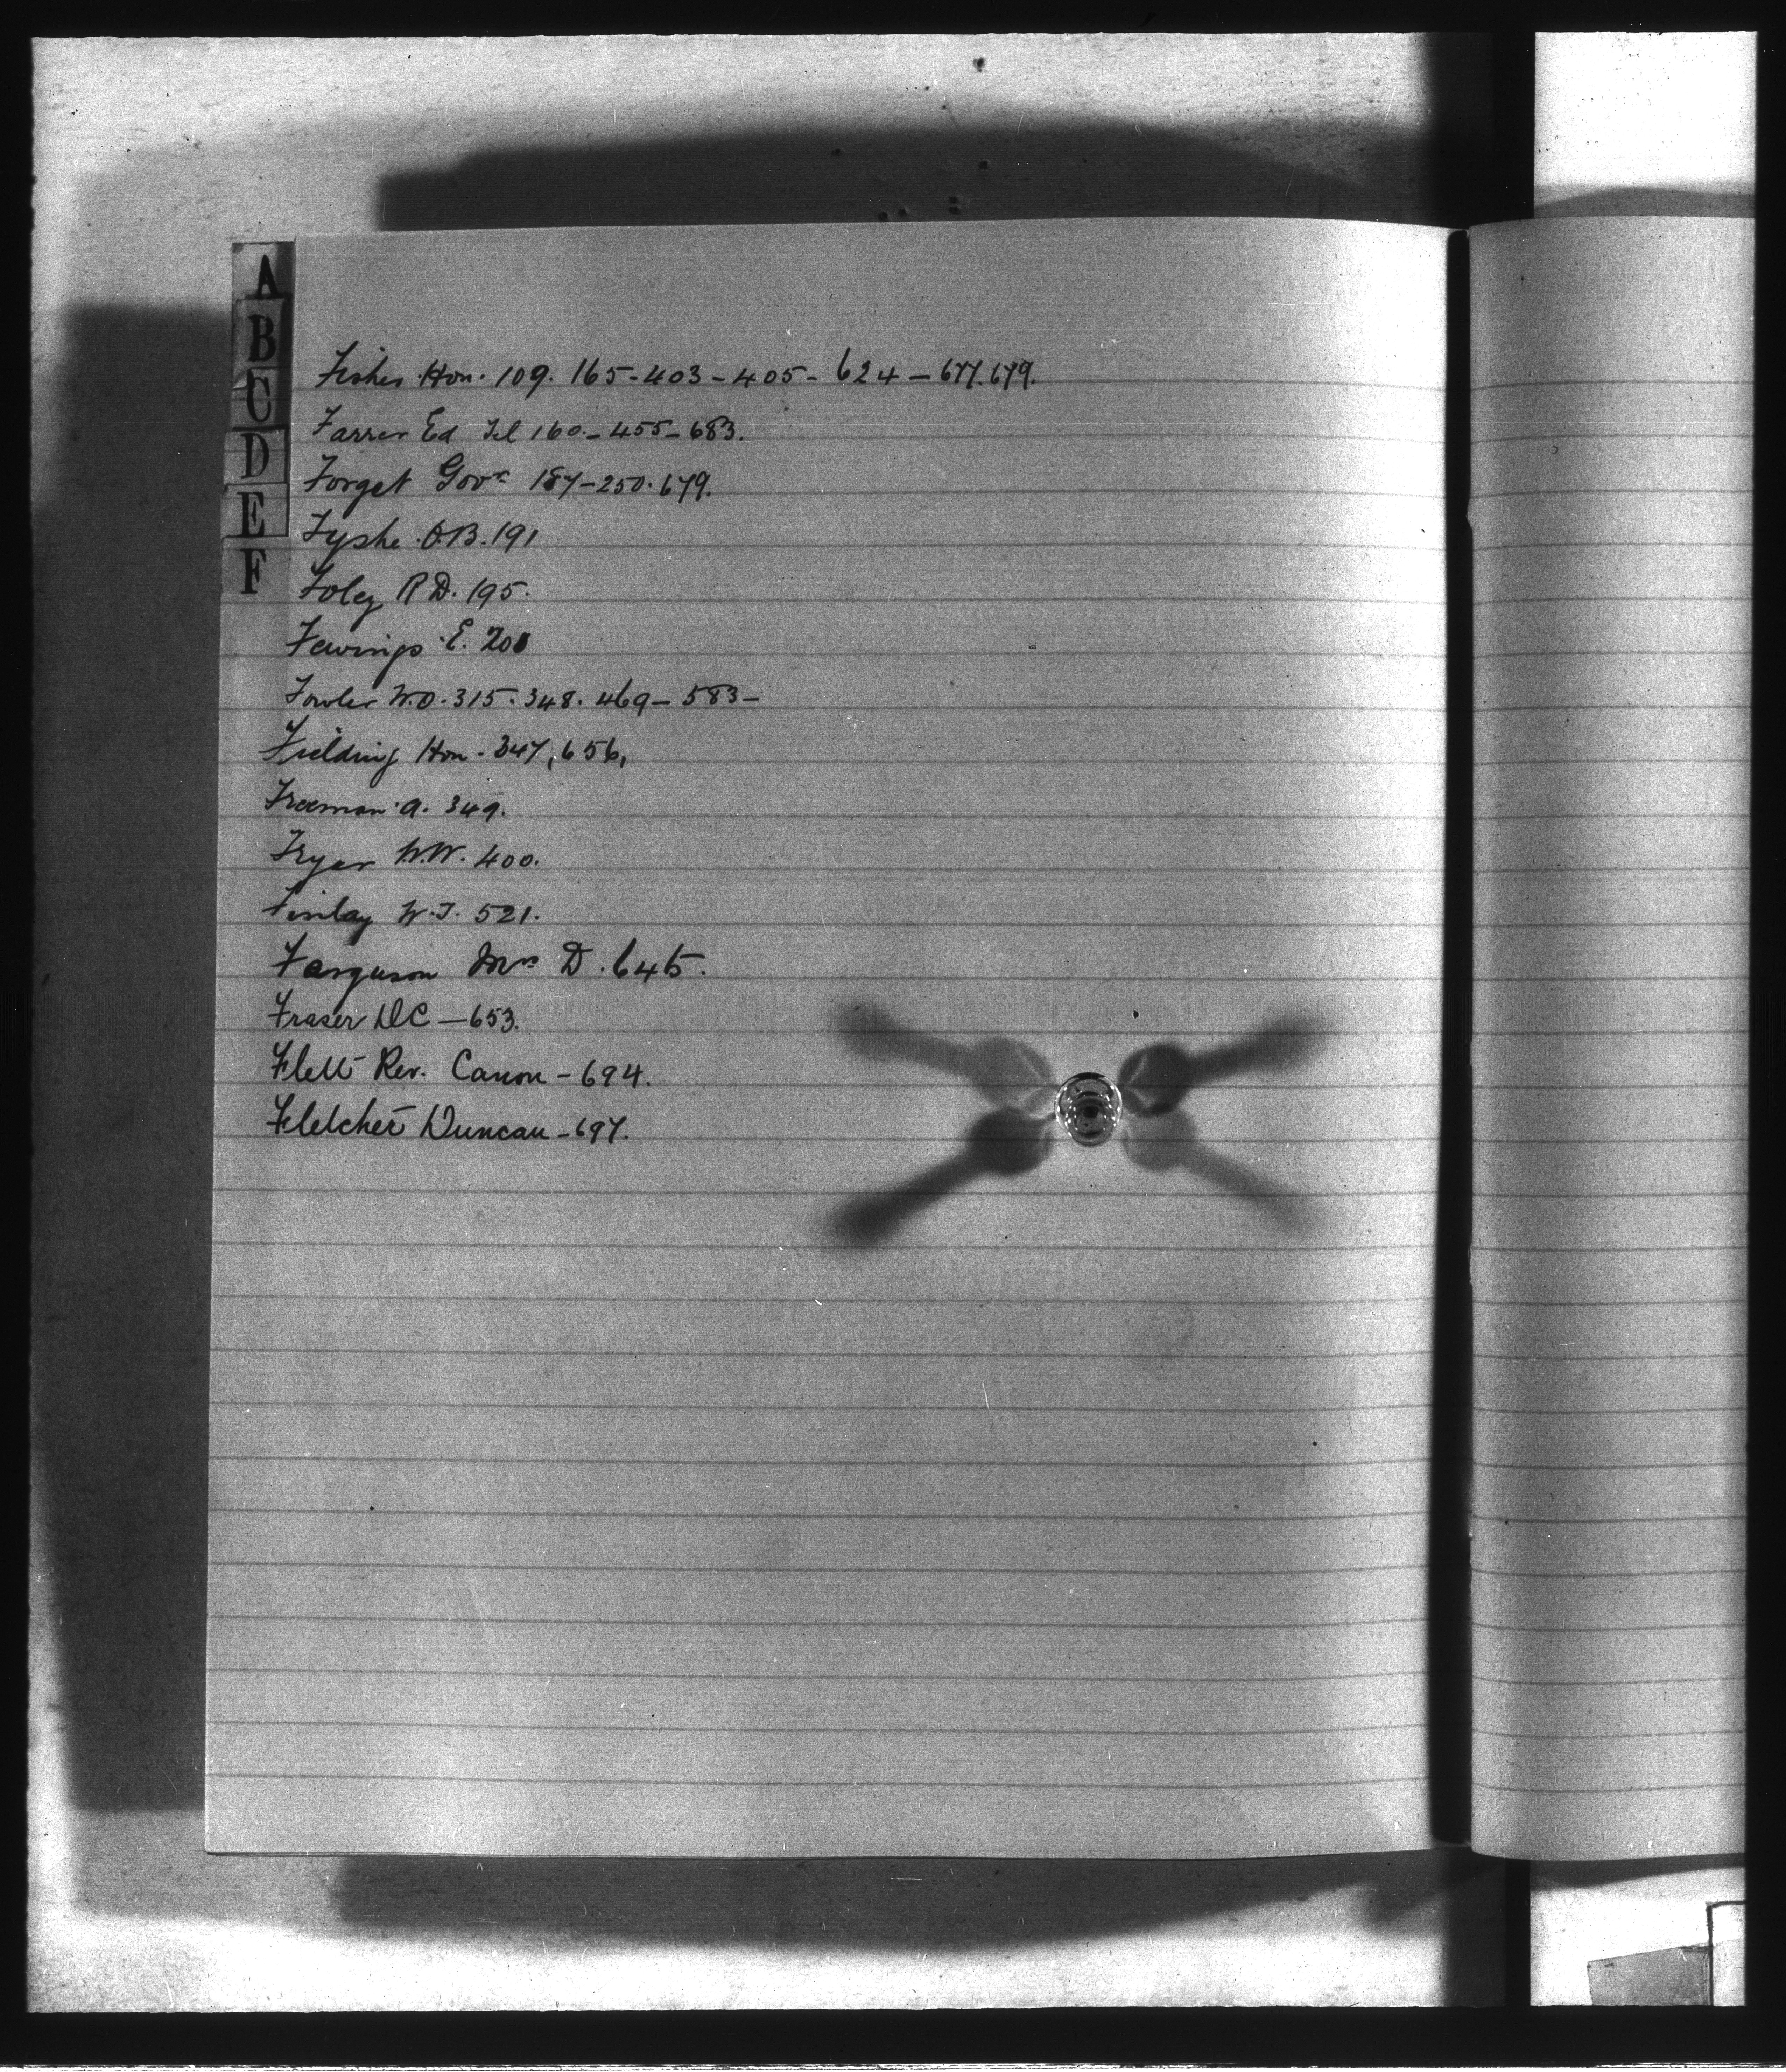 A
B
C
D
E
F
Fisher Hon. 109. 165-403-405-624-677.679.
Farrer Ed Tel 160-455-683.
Forget Govr 187-250.679.
Fyshe O.B. 191
Foley R D. 195.
Fewings E. 201
Fowler W.O. 315.348.469-583-
Fielding Hon - 347, 656,
Freeman A. 349.
Fryer W.W. 400.
Finlay W.T. 521.
Ferguson Mrs D. 645.
Fraser DC - 653.
Flett Rev. Canon - 694.
Fletcher Duncan - 697.